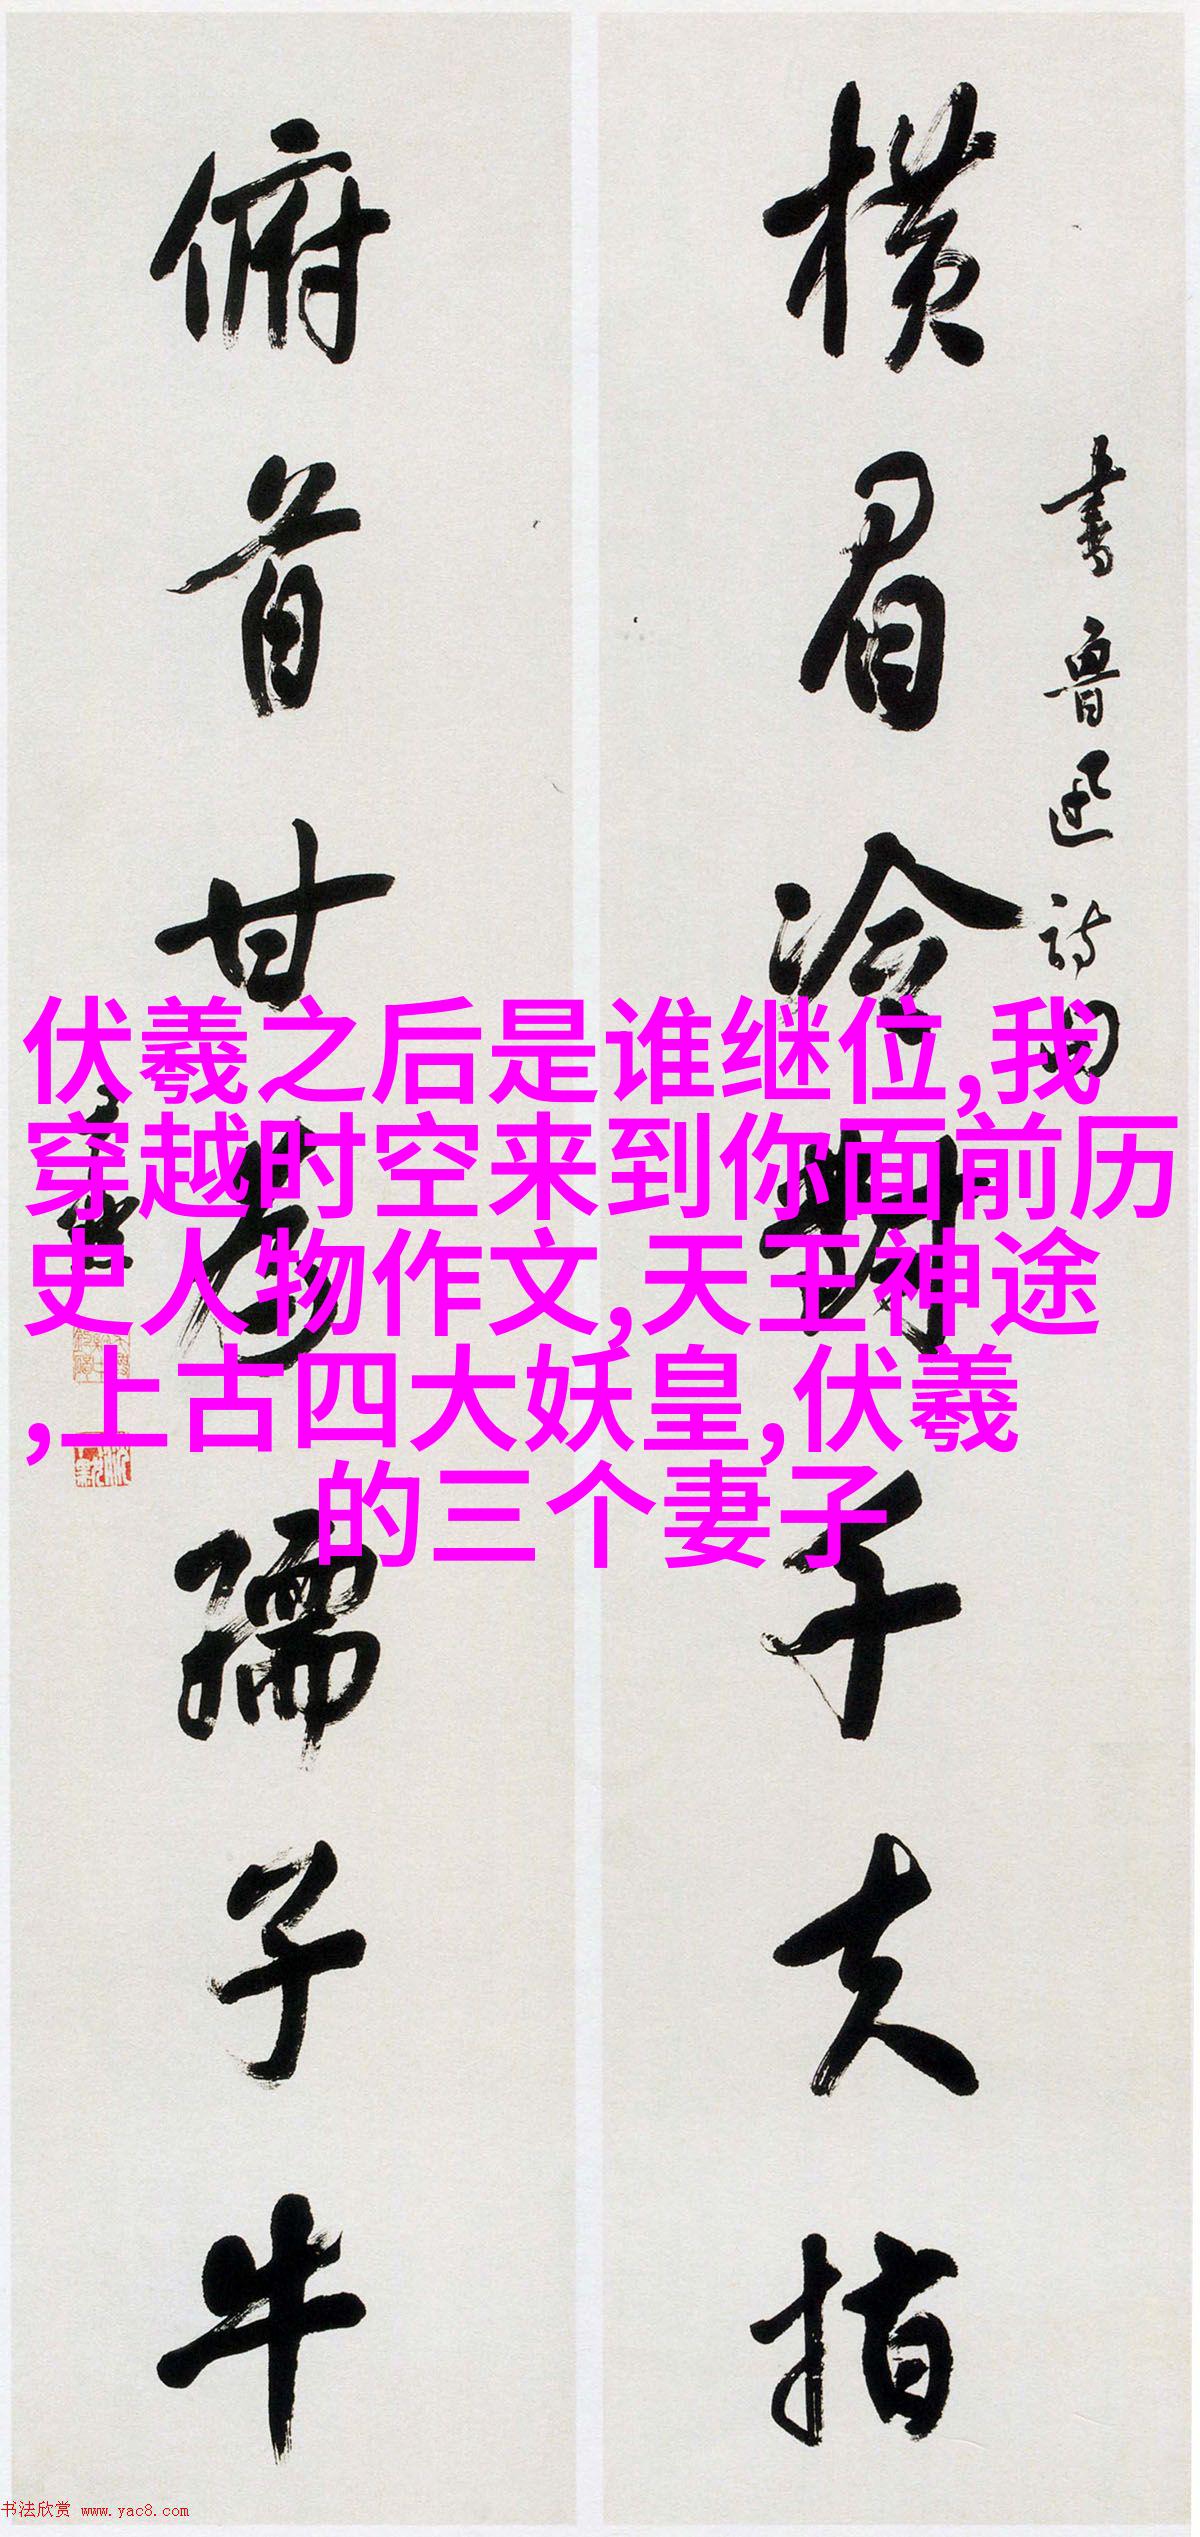 橫眉冷對千夫指
書魯迅詩句
俯首甘為孺子牛
伏羲之后是谁继位,我
穿越时空来到你面前历
史人物作文,天王神途
,上古四大妖皇,伏羲
的三个妻子
书法欣赏 www.yac8.com